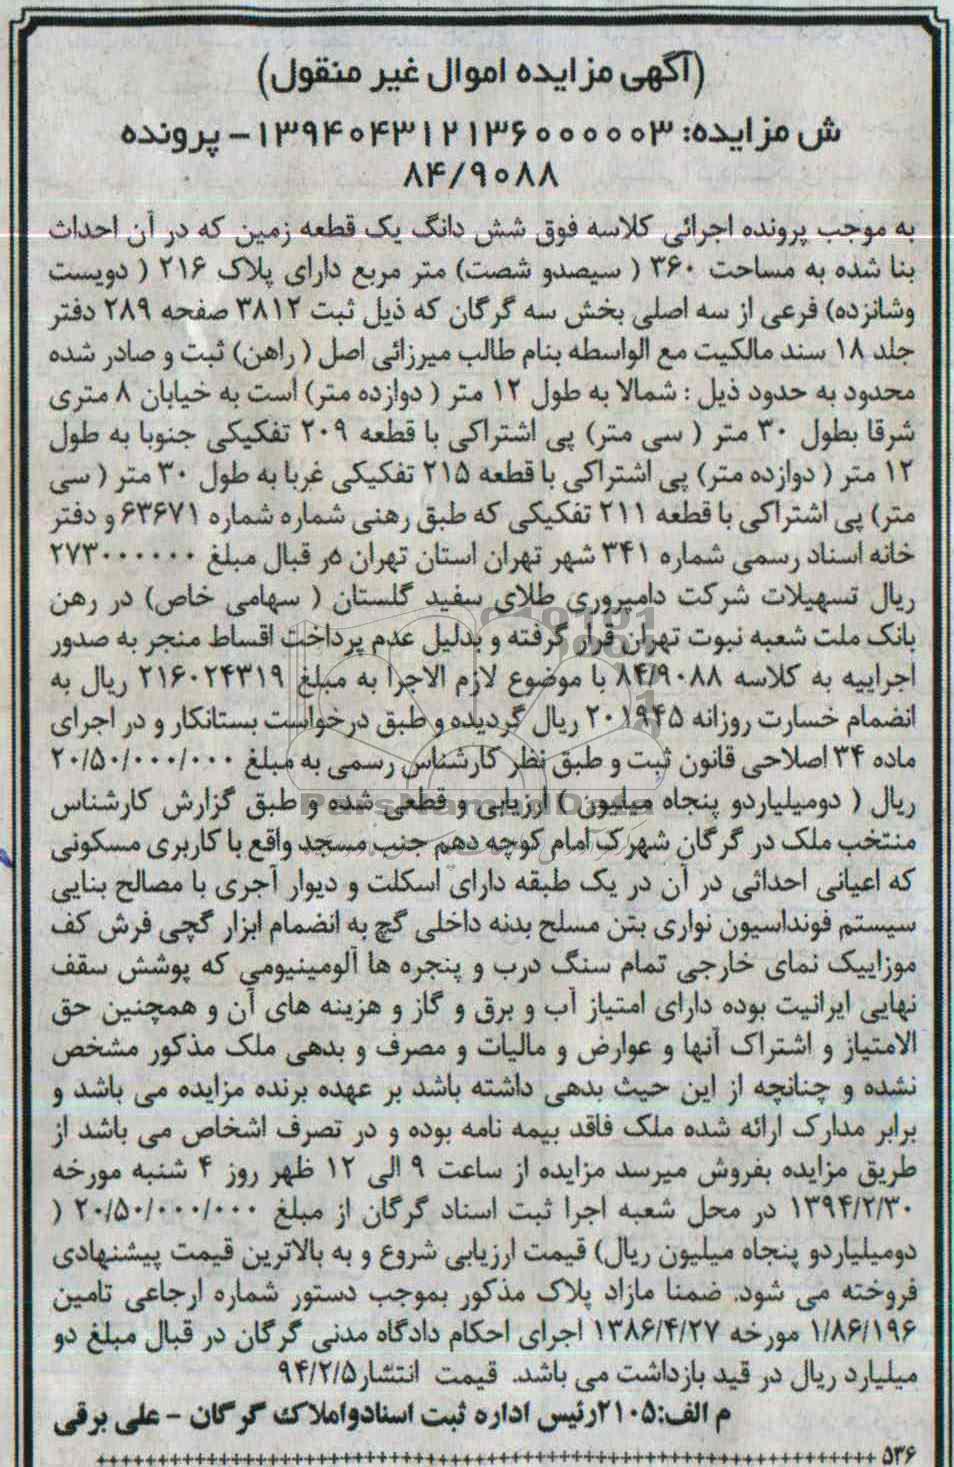 (آگهی مزایده اموال غیر منقول)
ش مزایده: ۱۳۹۴۰۴۳۱۲۱۳۶۰۰۰۰۰۳ – پرونده
۸۴/۹۰۸۸
به موجب پرونده اجرائی کلاسه فوق شش دانگ یک قطعه زمین که در آن احداث
بنا شده به مساحت ۳۶۰ ( سیصدو شصت) متر مربع دارای پلاک ۲۱۶ ( دویست
وشانزده) فرعی از سه اصلی بخش سه گرگان که ذیل ثبت ۳۸۱۲ صفحه ۲۸۹ دفتر
جلد ۱۸ سند مالکیت مع الواسطه بنام طالب میرزائی اصل ( راهن) ثبت و صادر شده
محدود به حدود ذیل : شمالا به طول ۱۲ متر ( دوازده متر) است به خیابان ۸ متری
شرقا بطول ۳۰ متر ( سی متر) پی اشتراکی با قطعه ۲۰۹ تفکیکی جنوبا به طول
۱۲ متر ( دوازده متر) پی اشتراکی با قطعه ۲۱۵ تفکیکی غربا به طول ۳۰ متر ( سی
متر) پی اشتراکی با قطعه ۲۱۱ تفکیکی که طبق رهنی شماره شماره ۶۳۶۷۱ و دفتر
خانه اسناد رسمی شماره ۳۴۱ شهر تهران استان تهران در قبال مبلغ ۲۷۳۰۰۰۰۰۰
ریال تسهیلات شرکت دامپروری طلای سفید گلستان ( سهامی خاص) در رهن
بانک ملت شعبه نبوت تهران قرار گرفته و بدلیل عدم پرداخت اقساط منجر به صدور
اجراییه به کلاسه ۸۴/۹۰۸۸ با موضوع لازم الاجرا به مبلغ ۲۱۶۰۲۴۳۱۹ ریال به
انضمام خسارت روزانه ۲۰۱۹۴۵ ریال گردیده و طبق درخواست بستانکار و در اجرای
ماده ۳۴ اصلاحی قانون ثبت و طبق نظر کارشناس رسمی به مبلغ ۲۰/۵۰/۰۰۰/۰۰۰
ریال ( دومیلیاردو پنجاه میلیون ) ارزیابی و قطعی شده و طبق گزارش کارشناس
منتخب ملک در گرگان شهرک امام کوچه دهم جنب مسجد واقع با کاربری مسکونی
که اعیانی احداثی در آن در یک طبقه دارای اسکلت و دیوار آجری با مصالح بنایی
سیستم فونداسیون نواری بتن مسلح بدنه داخلی گچ به انضمام ابزار گچی فرش کف
موزاییک نمای خارجی تمام سنگ درب و پنجره ها آلومینیومی که پوشش سقف
نهایی ایرانیت بوده دارای امتیاز آب و برق و گاز و هزینه های آن و همچنین حق
الامتیاز و اشتراک آنها و عوارض و مالیات و مصرف و بدهی ملک مذکور مشخص
نشده و چنانچه از این حیث بدهی داشته باشد بر عهده برنده مزایده می باشد و
برابر مدارک ارائه شده ملک فاقد بیمه نامه بوده و در تصرف اشخاص می باشد از
طریق مزایده بفروش میرسد مزایده از ساعت ۹ الی ۱۲ ظهر روز ۴ شنبه مورخه
۱۳۹۴/۲/۳۰ در محل شعبه اجرا ثبت اسناد گرگان از مبلغ ۲۰/۵۰/۰۰۰/۰۰۰ (
دومیلیاردو پنجاه میلیون ریال) قیمت ارزیابی شروع و به بالاترین قیمت پیشنهادی
فروخته می شود. ضمنا مازاد پلاک مذکور بموجب دستور شماره ارجاعی تامین
۱/۸۶/۱۹۶ مورخه ۱۳۸۶/۴/۲۷ اجرای احکام دادگاه مدنی گرگان در قبال مبلغ دو
میلیارد ریال در قید بازداشت می باشد. قیمت انتشار ۹۴/۲/۵
م الف:۲۱۰۵رئیس اداره ثبت اسنادواملاک گرگان – علی برقی
۵۳۶
ParsNamadData